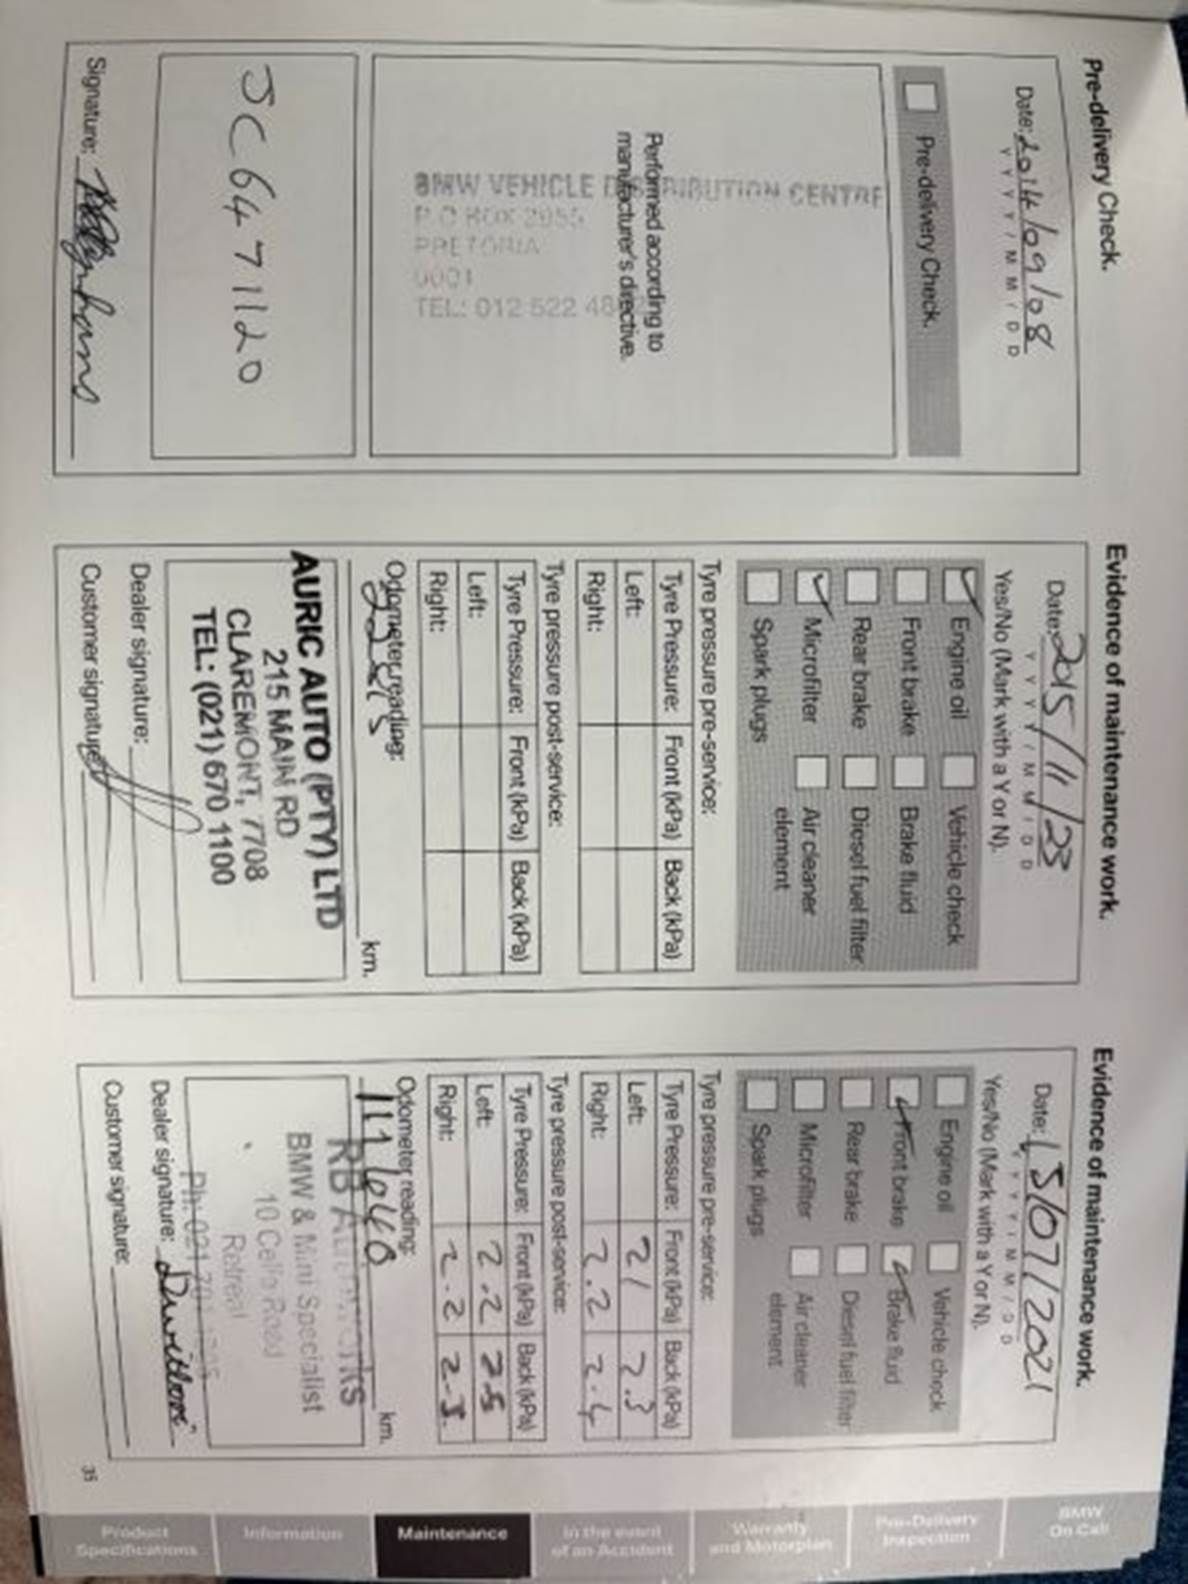 Pre-delivery Check.
Date: 2014/09/08
Y Y Y Y / M M / D D
Pre-delivery Check.
Performed according to
manufacturer's directive.
BMW VEHICLE DISTRIBUTION CENTRE
P O BOX 2955
PRETORIA
0001
TEL: 012 522 48
JC64 71120
Signature:
Evidence of maintenance work.
Date: 2015/11/23
Y Y Y Y / M M / D D
Yes/No (Mark with a Y or N).
Engine oil Vehicle check
Front brake Brake fluid
Rear brake Diesel fuel filter
Microfilter Air cleaner
element
Spark plugs
Tyre pressure pre-service:
Tyre Pressure: Front (kPa) Back (kPa)
Left:
Right:
Tyre pressure post-service:
Tyre Pressure: Front (kPa) Back (kPa)
Left:
Right:
Odometer reading:
km.
AURIC AUTO (PTY) LTD
215 MAIN RD
CLAREMONT, 7708
TEL: (021) 670 1100
Dealer signature:
Customer signature:
Evidence of maintenance work.
Date: 15/07/2021
Y Y Y Y / M M / D D
Yes/No (Mark with a Y or N).
Engine oil Vehicle check
Front brake Brake fluid
Rear brake Diesel fuel filter
Microfilter Air cleaner
element
Spark plugs
Tyre pressure pre-service:
Tyre Pressure: Front (kPa) Back (kPa)
Left: 21 2.3
Right: 2.2 2.4
Tyre pressure post-service:
Tyre Pressure: Front (kPa) Back (kPa)
Left: 2.2 25
Right: 2.2 2-5.
Odometer reading:
111640 km.
RB Autoworks
BMW & Mini Specialist
10 Celie Road
Retreat
Ph: 021 701
Dealer signature:
Customer signature:
35
BMW
On Call
Pre-Delivery
Inspection
Warranty
and Motorplan
In the event
of an Accident
Maintenance
Information
Product
Specifications